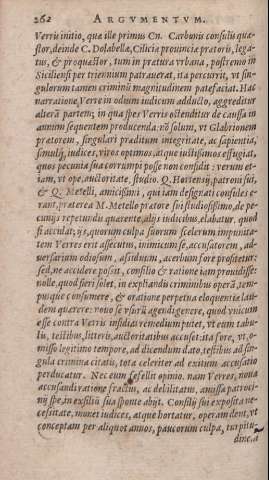 262 ARGVMENTVM.
Verris initio, qua ille primus Cn. Carbonis consulis quæ-
stor, deinde C. Dolabellæ, Ciliciæ prouincia prætoris, lega-
tus, & proquæstor, tum in prætura vrbana, postremo in
Siciliensi per triennium patrauerat, ita percurrit, vt sin-
gulorum tamen criminū magnitudinem patefaciat. Hac
narratione, Verre in odium iudicum adducto, aggreditur
alterā partem; in qua spes Verris ostenditur de caussa in
annum sequentem producenda: nō solum, vt Glabrionem
prætorem, singulari præditum integritate, ac sapientia,
simulq́, iudices, viros optimos, atque iustissimos effugiat,
quos pecunia sua corrumpi posse non confidit: verum et-
iam, vt ope, auctoritate, studio, Q. Hortensij, patroni sui,
& Q. Metelli, amicissimi, qui iam designati consules e-
rant, præterea M. Metello prætore sui studiosissimo, de pe-
cunijs repetundis quærente, alijs iudicibus, elabatur. quod
si accidat; ijs, quorum culpa suorum scelerum impunita-
tem Verres erit assecutus, inimicum se, accusatorem, ad-
uersarium odiosum, assiduum, acerbum fore profitetur:
sed, ne accidere possit, consilio & ratione iam prouidisse:
nolle, quod fieri solet, in explicandis criminibus operā, tem-
pusque consumere, & oratione perpetua eloquentiæ lau-
dem quærere: nouo se vsurū agendi genere, quod vnicum
esse contra Verris insidias remedium putet, vt eum tabu-
lis, testibus, litteris, auctoritatibus accuset: ita fore, vt, o-
misso legitimo tempore, ad dicendum dato, testibus ad sin-
gula crimina citatis, tota celeriter ad exitum accusatio
perducatur. Nec eum fefellit opinio. nam Verres, noua
accusandi ratione fractus, ac debilitatus, amissa patroci-
nij spe, in exsiliū sua sponte abijt. Consilij sui exposita ne-
cessitate, monet iudices, atque hortatur, operam dent, vt
conceptam per aliquot annos, paucorum culpa, turpitu-
dine, a